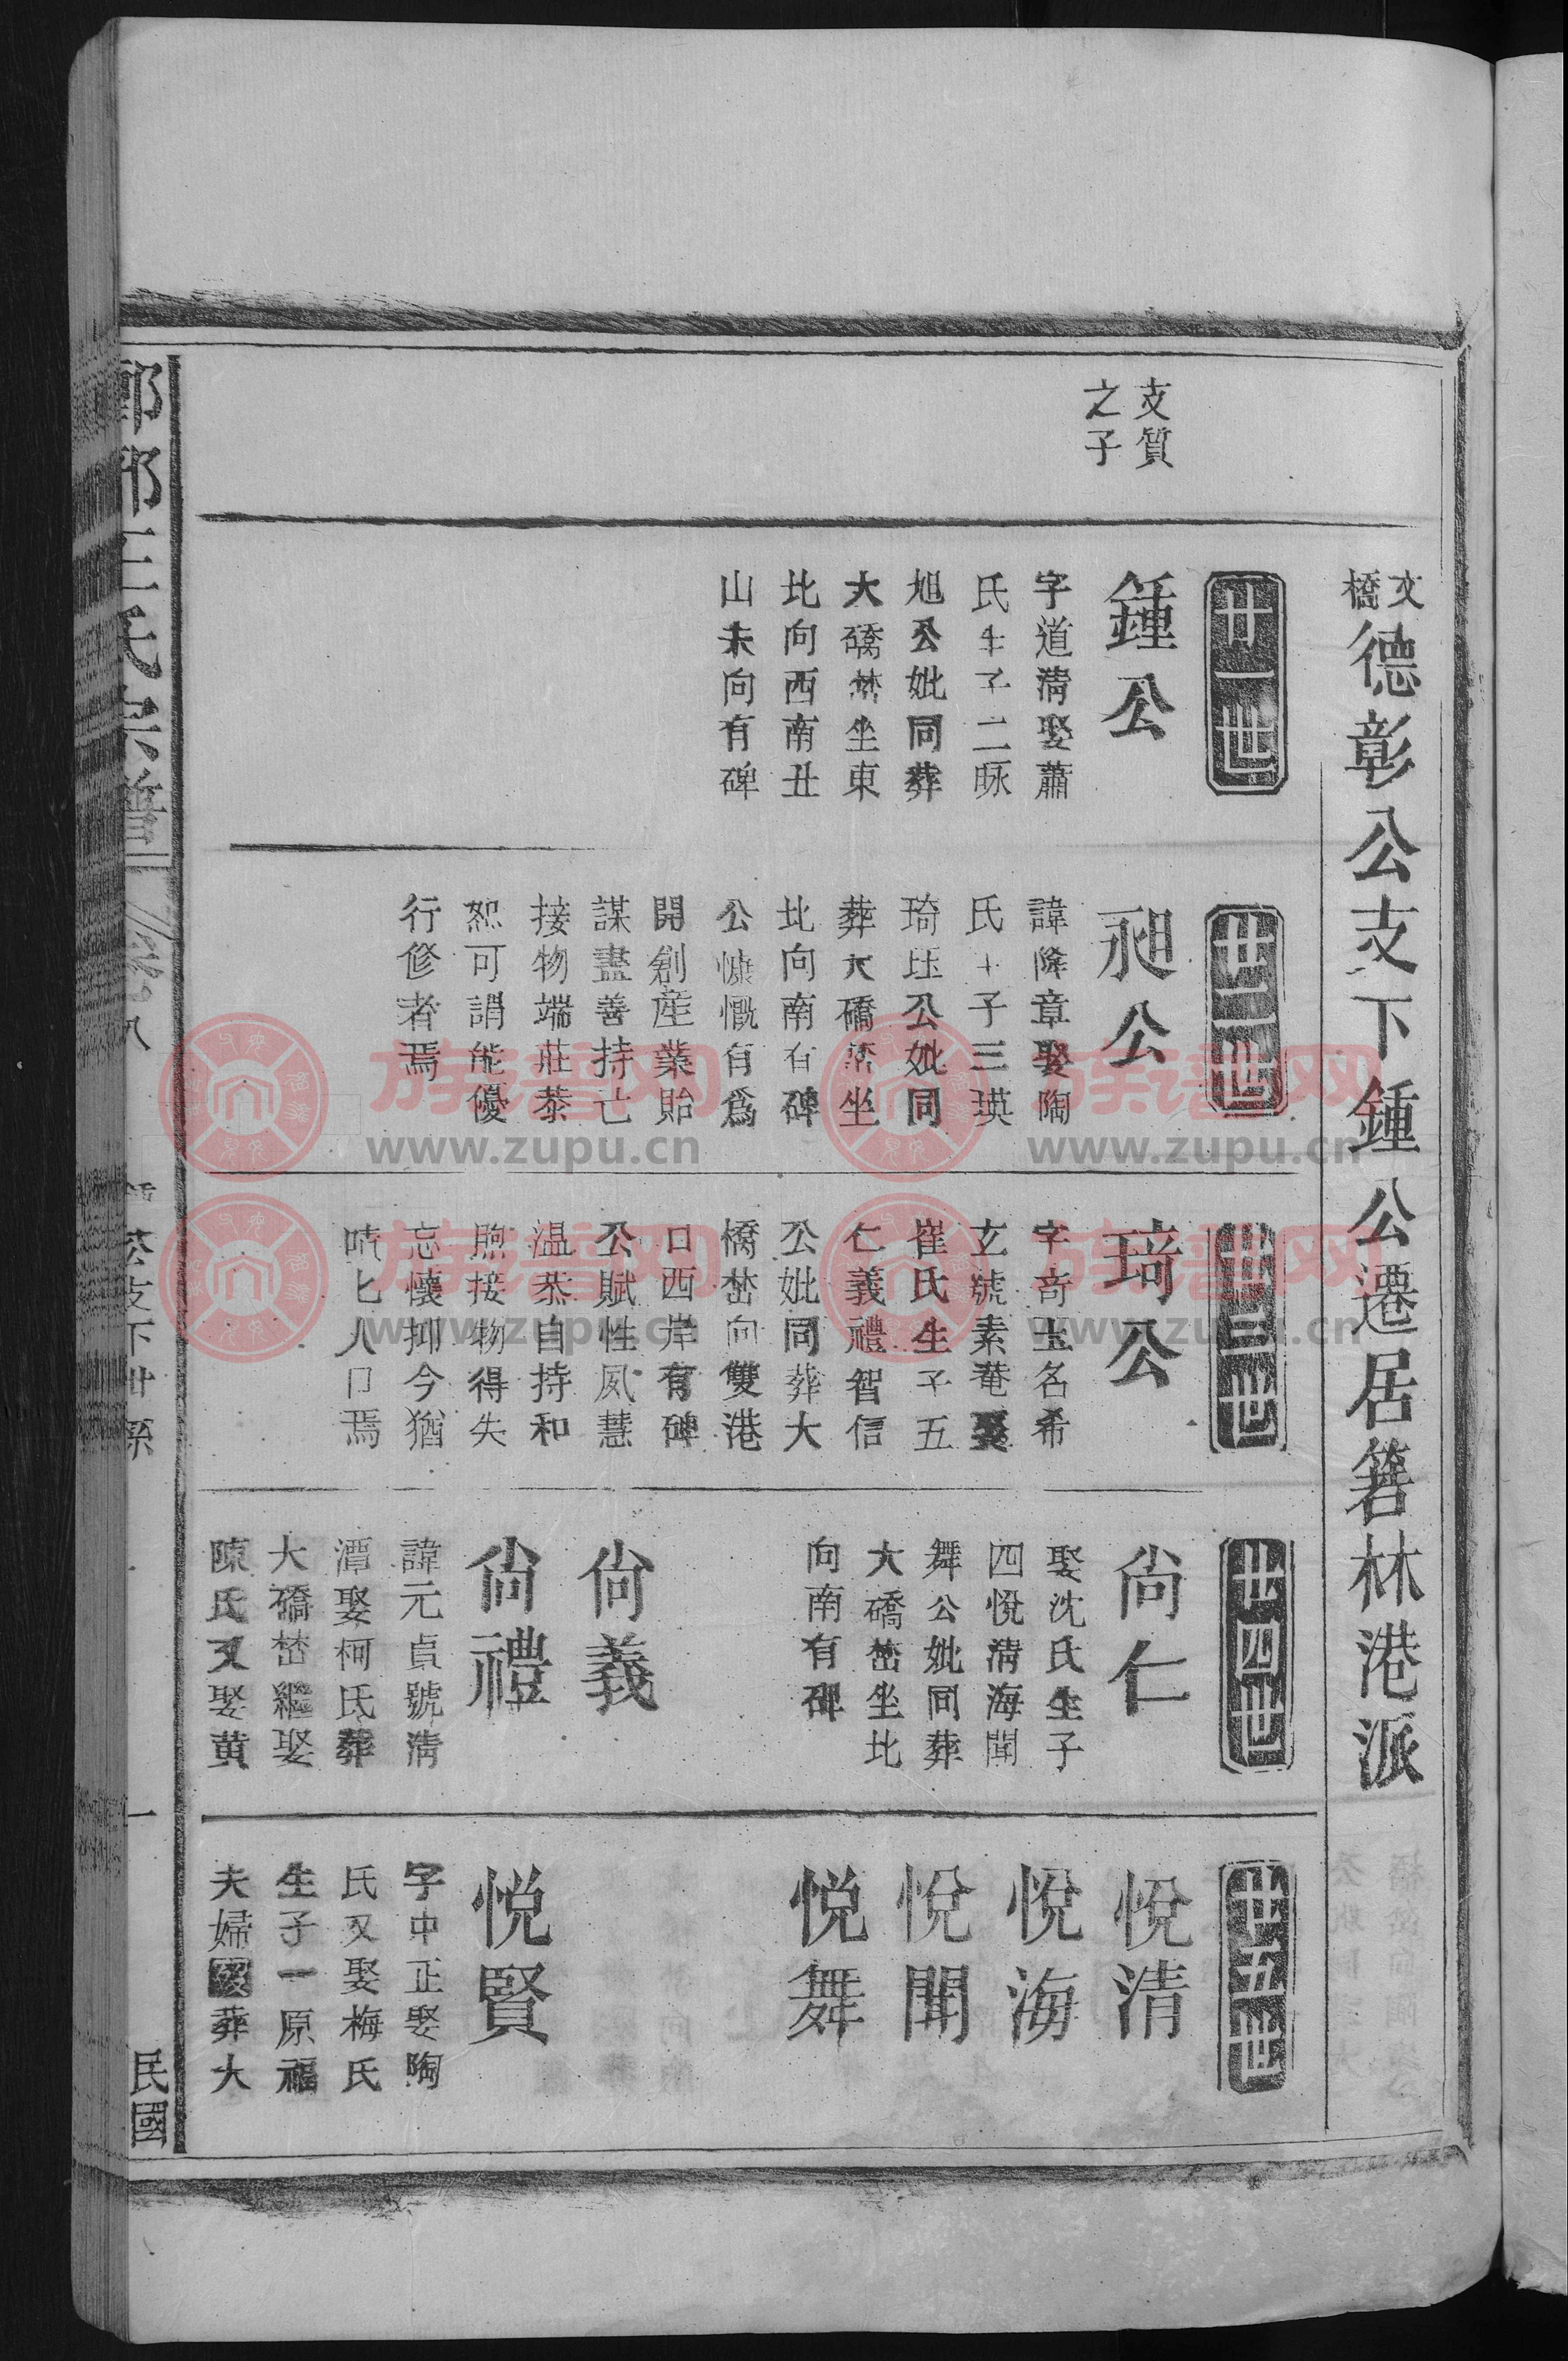 文橋
德彰公支下鍾公遷居箬林港派
支質
之子
廿一世
鍾公
字道清娶蕭
氏生子二昹
旭公妣同葬
大礄嵆坐東
北向西南丑
山未向有碑
廿二世
昶公
諱隆章娶陶
氏生子三瑛
琦珏公妣同
葬大礄嵆坐
北向南有碑
公慷慨有爲
開創產業貽
謀盡善持亡
接物端莊恭
恕可謂能優
行修者焉
廿三世
琦公
字奇玉名希
玄號素菴娶
崔氏生子五
仁義禮智信
公妣同葬大
橋嵆向雙港
口西岸有碑
公賦性夙慧
温恭自持和
煦接物得失
忘懷抑今猶
嘖匕人口焉
廿四世
尙仁
娶沈氏生子
四悅清海聞
舞公妣同葬
大礄嵆坐北
向南有碑
尙義
尙禮
諱元貞號清
潭娶柯氏葬
大礄嵆繼娶
陳氏又娶黄
廿五世
悅清
悅海
悅聞
悅舞
悅賢
字中正娶陶
氏又娶梅氏
生子一原福
夫婦 葬大
王氏宗譜
卷八
公支下世系
一
民國
族譜网
www.zupu.cn
族譜网
www.zupu.cn
族譜网
www.zupu.cn
族譜网
www.zupu.cn